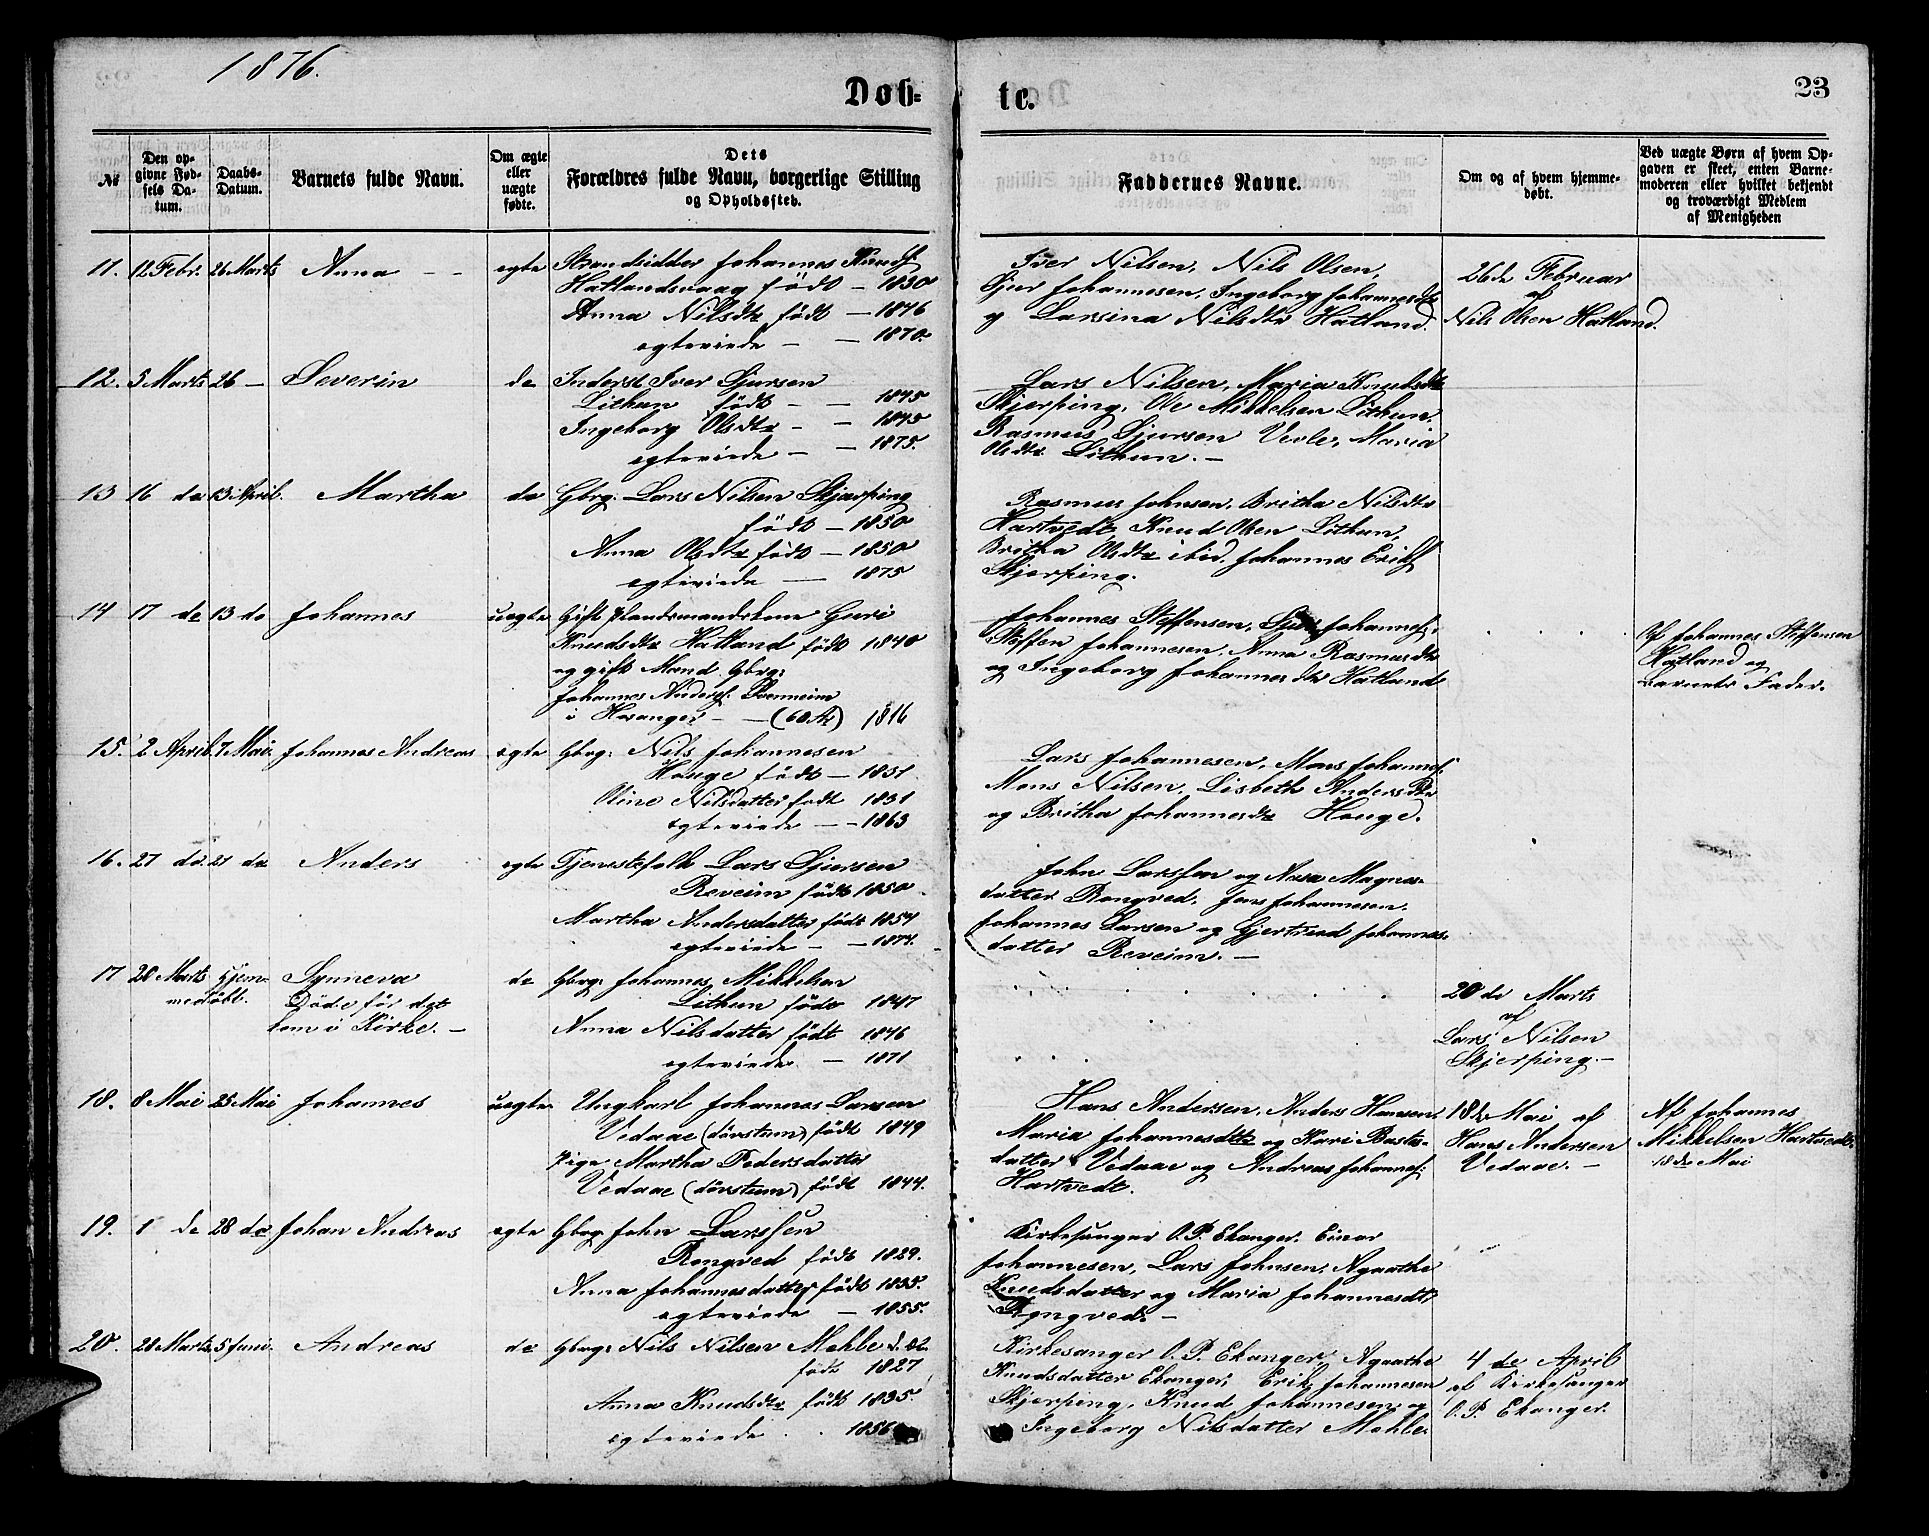 1876.
Døb-
te.
23
№
Den op-
givne Fød-
sels Da-
tum.
Daabs-
Datum.
Barnets fulde Navn.
Om ægte
eller
uægte
fødte.
Dets
Forældres fulde Navn, borgerlige Stilling
og Opholdssted.
Faddernes Navne.
Om og af hvem hjemme-
døbt.
Ved uægte Børn af hvem Op-
gaven er skeet, enten Barne-
moderen eller hvilket bekjendt
og troværdigt Medlem
af Menigheden
11. 12 Febr. 26 Marts Anna - - egte Strandsidder Johannes
Hatlandsvaag født - 1830
Anna Nilsdtr født - 1846
egteviede - - 1870.
Iver Nilsen, Nils Olsen,
Sjur Johannesen, Ingeborg Johannesdtr
og Larsina Nilsdtr Hatland.
26de Februar
af
Nils Olsen Hatland.
12. 5 Marts 26 - Severin do Inderst Iver Sjursen
Lithun født - - 1845
Ingeborg Olsdtr - - 1845
egteviede - - 1875.
Lars Nilsen, Maria Knudsdtr
Skjerping, Ole Mikkelsen Lithun,
Rasmus Sjursen Veole, Maria
Olsdtr Lithun. -
13 16 do 13 April. Martha do Gbrg: Lars Nilsen Skjærping
født - 1850
Anna Olsdtr født - 1850
egteviede - 1875
Rasmus Johnsen, Britha Nilsdtr
Hartvedt, Knud Olsen Lithun,
Britha Olsdtr ibid. Johannes Erichs:
Skjerping.
14 17 de 13 do Johannes uegte Gift Plandsmandskone Guri
Knudsdtr Hatland født 1840
og gift Mand Gbrg:
Johannes Anders:
i Hosanger - - (60 Ar) 1816
Johannes Steffensen, Sjur Johannes:
Steffen Johannesen, Anna Rasmusdtr
og Ingeborg Johannesdtr Hatland
Af Johannes Steffensen
Hatland og
Barnets Fader.
15. 2 April. 7 Mai. Johannes Andreas egte Gbrg: Nils Johannesen
Houge født - 1831
Oline Nilsdatter født 1831
egteviede - - 1863
Lars Johannesen, Mons Johannes:
Mons Nilsen, Lisbeth Andersdtr
og Britha Johannesdtr Houge.
16. 27 do 21 do Anders egte Tjenestefolk Lars Sjursen
Reveim født 1850
Martha Andersdatter født 1854
egteviede - - 1874.
John Larssen og Magnes-
datter Rongved, Jens Johannesen.
Johannes Larsen og Gjertrud Johannes-
datter Reveim. -
17 20 Marts Hjem-
medøbt. Synneva
Døde før det
kom i Kirke. -
do Gbrg: Johannes Mikkelsen
Lithun født 1847
Anna Nilsdatter født 1846
egteviede - 1871
20 de Marts
af
Lars Nilsen
Skjerping. -
18. 8 Mai 25 Mai Johannes uegte Ungkarl Johannes Larsen
Vedaae (dövstum) født 1849
Pige Martha Pedersdatter
Vedaae (dövstum) født 1844.
Hans Andersen, Anders Hansen,
Maria Johannesdtr og Kari Bastes-
datter Vedaae og Andreas Johannes:
Hartvedt.
18de Mai af
Hans Andersen
Vedaae. -
Af Johannes
Mikkelsen Hartvedt.
18de Mai
19. 1 de 28 do Johan Andreas egte Gbrg. John Larssen
Rongved født 1829.
Anna Johannesdatter født 1835.
egteviede - 1855.
Kirkesanger O. P. Ekanger. Einar
Johannesen, Lars Johnsen, Agaatha
Knudsdatter og Maria Johannesdtr
Rongved. -
20. 28 Marts 5 Juni. Andreas do Gbrg: Nils Nilsen Mehle
født 1827
Anna Knudsdtr født 1835.
egteviede . . 1856
Kirkesanger O. P. Ekanger, Agaatha
Knudsdatter Ekanger, Erik Johannesen
Skjerping, Knud Johannesen og
Ingeborg Nilsdatter Mehle.
4 de April
af Kirkesanger
O. P. Ekanger.